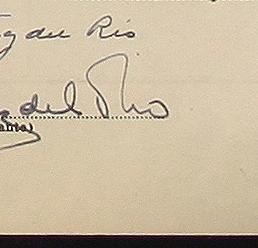 du Rio
del Rio
ante)